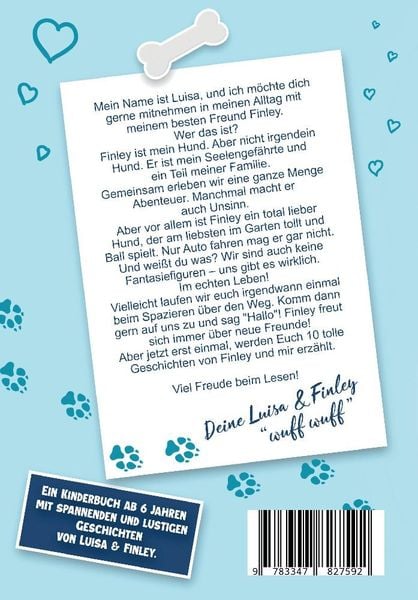 Mein Name ist Luisa, und ich möchte dich
gerne mitnehmen in meinen Alltag mit
meinem besten Freund Finley.
Wer das ist?
Finley ist mein Hund. Aber nicht irgendein
Hund. Er ist mein Seelengefährte und
ein Teil meiner Familie.
Gemeinsam erleben wir eine ganze Menge
Abenteuer. Manchmal macht er
auch Unsinn.
Aber vor allem ist Finley ein total lieber
Hund, der am liebsten im Garten tollt und
Ball spielt. Nur Auto fahren mag er gar nicht.
Und weißt du was? Wir sind auch keine
Fantasiefiguren – uns gibt es wirklich.
Im echten Leben!
Vielleicht laufen wir euch irgendwann einmal
beim Spazieren über den Weg. Komm dann
gern auf uns zu und sag "Hallo"! Finley freut
sich immer über neue Freunde!
Aber jetzt erst einmal, werden Euch 10 tolle
Geschichten von Finley und mir erzählt.
Viel Freude beim Lesen!
Deine Luisa & Finley
“wuff wuff”
EIN KINDERBUCH AB 6 JAHREN
MIT SPANNENDEN UND LUSTIGEN
GESCHICHTEN
VON LUISA & FINLEY.
9 783347 827592